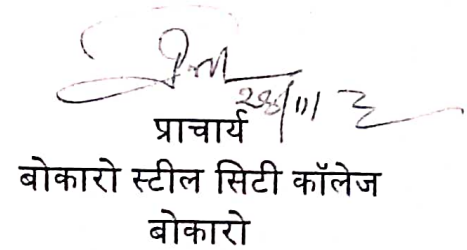 प्राचार्य
बोकारो स्टील सिटी कॉलेज
बोकारो